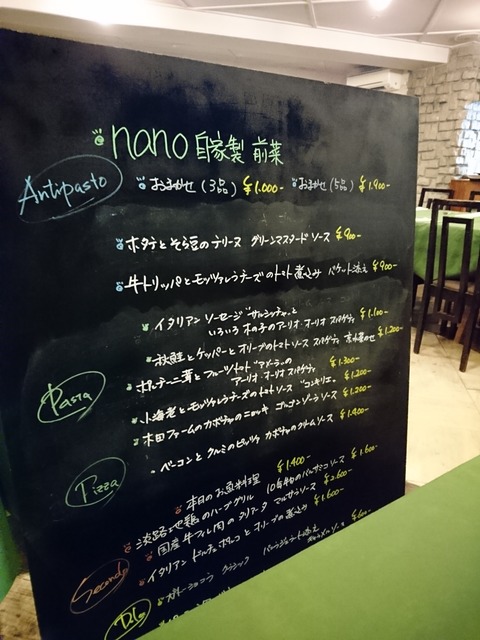 nano 自家製 前菜
Antipasto
おまかせ (3品) ¥1.000- おまかせ (5品) ¥1.900-
ホタテとそら豆のテリーヌ グリーンマスタードソース ¥900-
牛トリッパとモッツァレラチーズのトマト煮込み バケット添え ¥900-
イタリアンソーセージ"サルシッチャ"と
いろいろ木の子のアーリオ・オーリオ スパゲティ ¥1.100-
秋鮭とケッパーとオリーブのトマトソース スパゲティ ¥1.200-
Pasta
ポルチーニ茸とフルーツトマト
アーリオ・オーリオ スパゲティ ¥1.300-
小海老とモッツァレラチーズのトマトソース "コンキリエ" ¥1.200-
本田ファームのカボチャのニョッキ ゴルゴンゾーラソース ¥1.200-
ベーコンとクルミのピッツァ カボチャのクリームソース ¥1.400-
Pizza
本日のお魚料理 ¥1.400-
淡路地鶏のハーブグリル 10年物のバルサミコソース ¥1.600-
国産牛フィレ肉のタリアータ マルサラソース ¥2.600-
イタリアンドルチェポルコとオリーブの煮込み ¥1.600-
Secondo
クラシック ¥600-